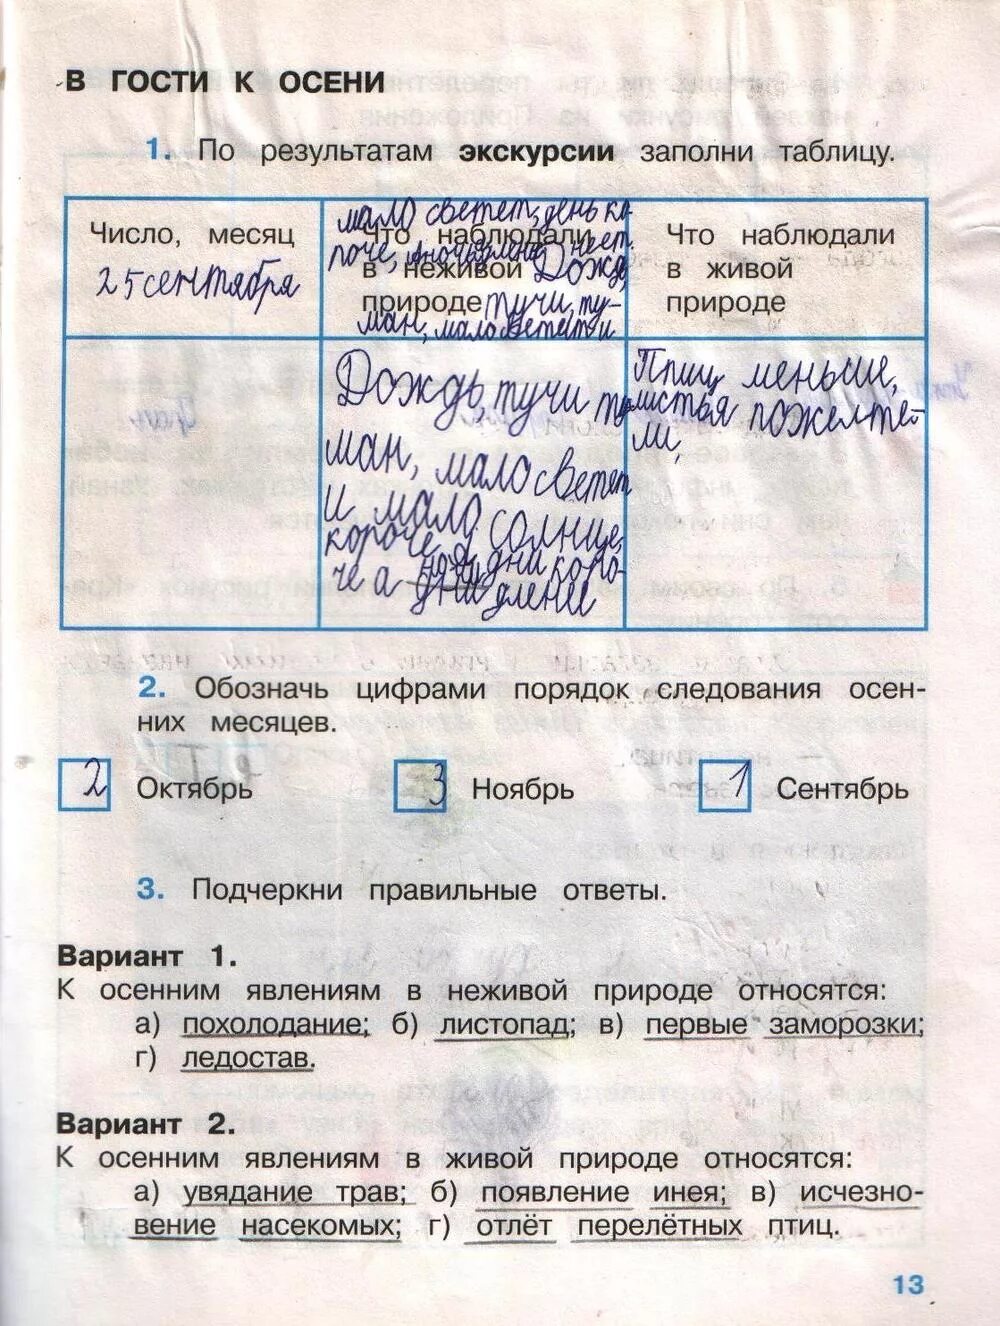 В ГОСТИ К ОСЕНИ
1. По результатам экскурсии заполни таблицу.
Число, месяц
25 сентября
мало светет, день ко-
Что наблюдали
роче,
в неживой Дождь
природе тучи, ту-
ман, мало светет и
Что наблюдали
в живой
природе
Дождь тучи ту
ман, мало светет
и мало солнце,
короче
дни коро-
че а дни длене
Птиц меньше,
листья пожелте-
ли,
2. Обозначь цифрами порядок следования осен-
них месяцев.
2 Октябрь 3 Ноябрь 1 Сентябрь
3. Подчеркни правильные ответы.
Вариант 1.
К осенним явлениям в неживой природе относятся:
а) похолодание; б) листопад; в) первые заморозки;
г) ледостав.
Вариант 2.
К осенним явлениям в живой природе относятся:
а) увядание трав; б) появление инея; в) исчезно-
вение насекомых; г) отлёт перелётных птиц.
13